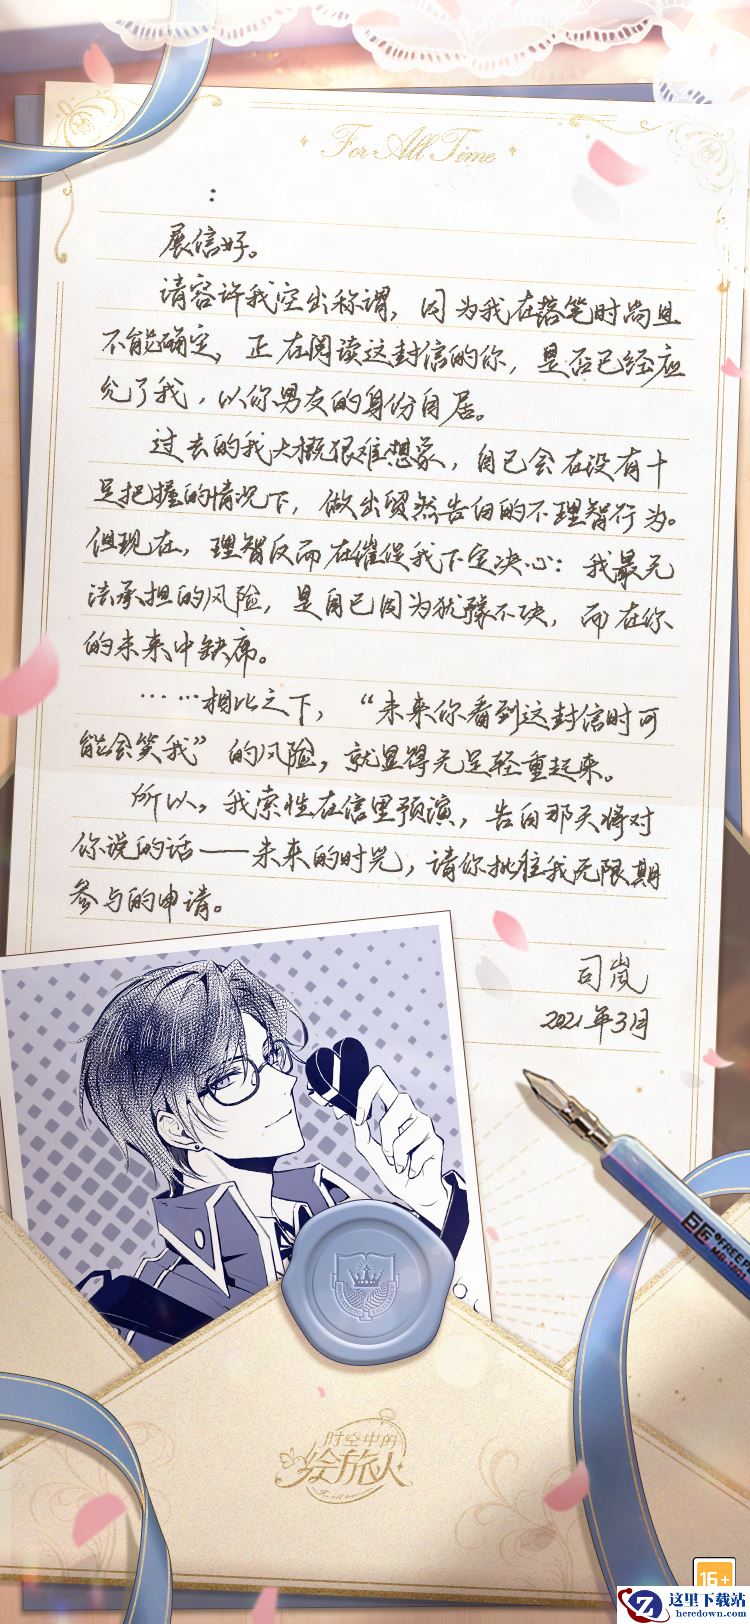 For All Time
:
展信好。
请容许我空出称谓，因为我在落笔时尚且
不能确定，正在阅读这封信的你，是否已经应
允了我，以你男友的身份自居。
过去的我大概很难想象，自己会在没有十
足把握的情况下，做出贸然告白的不理智行为。
但现在，理智反而在催促我下定决心：我最无
法承担的风险，是自己因为犹豫不决，而在你
的未来中缺席。
……相比之下，“未来你看到这封信时可
能会笑我”的风险，就显得无足轻重起来。
所以，我索性在信里预演，告白那天将对
你说的话——未来的时光，请你批准我无限期
参与的申请。
司岚
2021年3月
巨匠
时空中的
绘旅人
For all time
16+
这里下载站
heredown.com